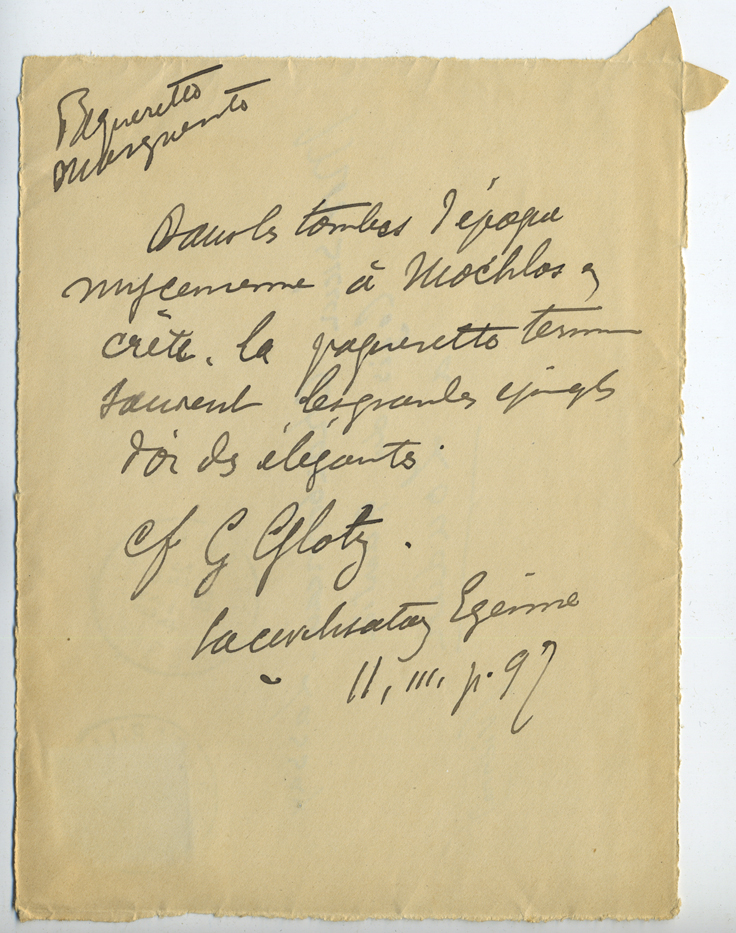 Paquerettes
Marguerites
Dans les tombes d'époque
mycenienne à Mochlos en
crête. la paquerette termine
souvent les grandes épingles
d'or des élégantes.
cf G Glotz.
la civilisation Egéenne
II, III, p. 97